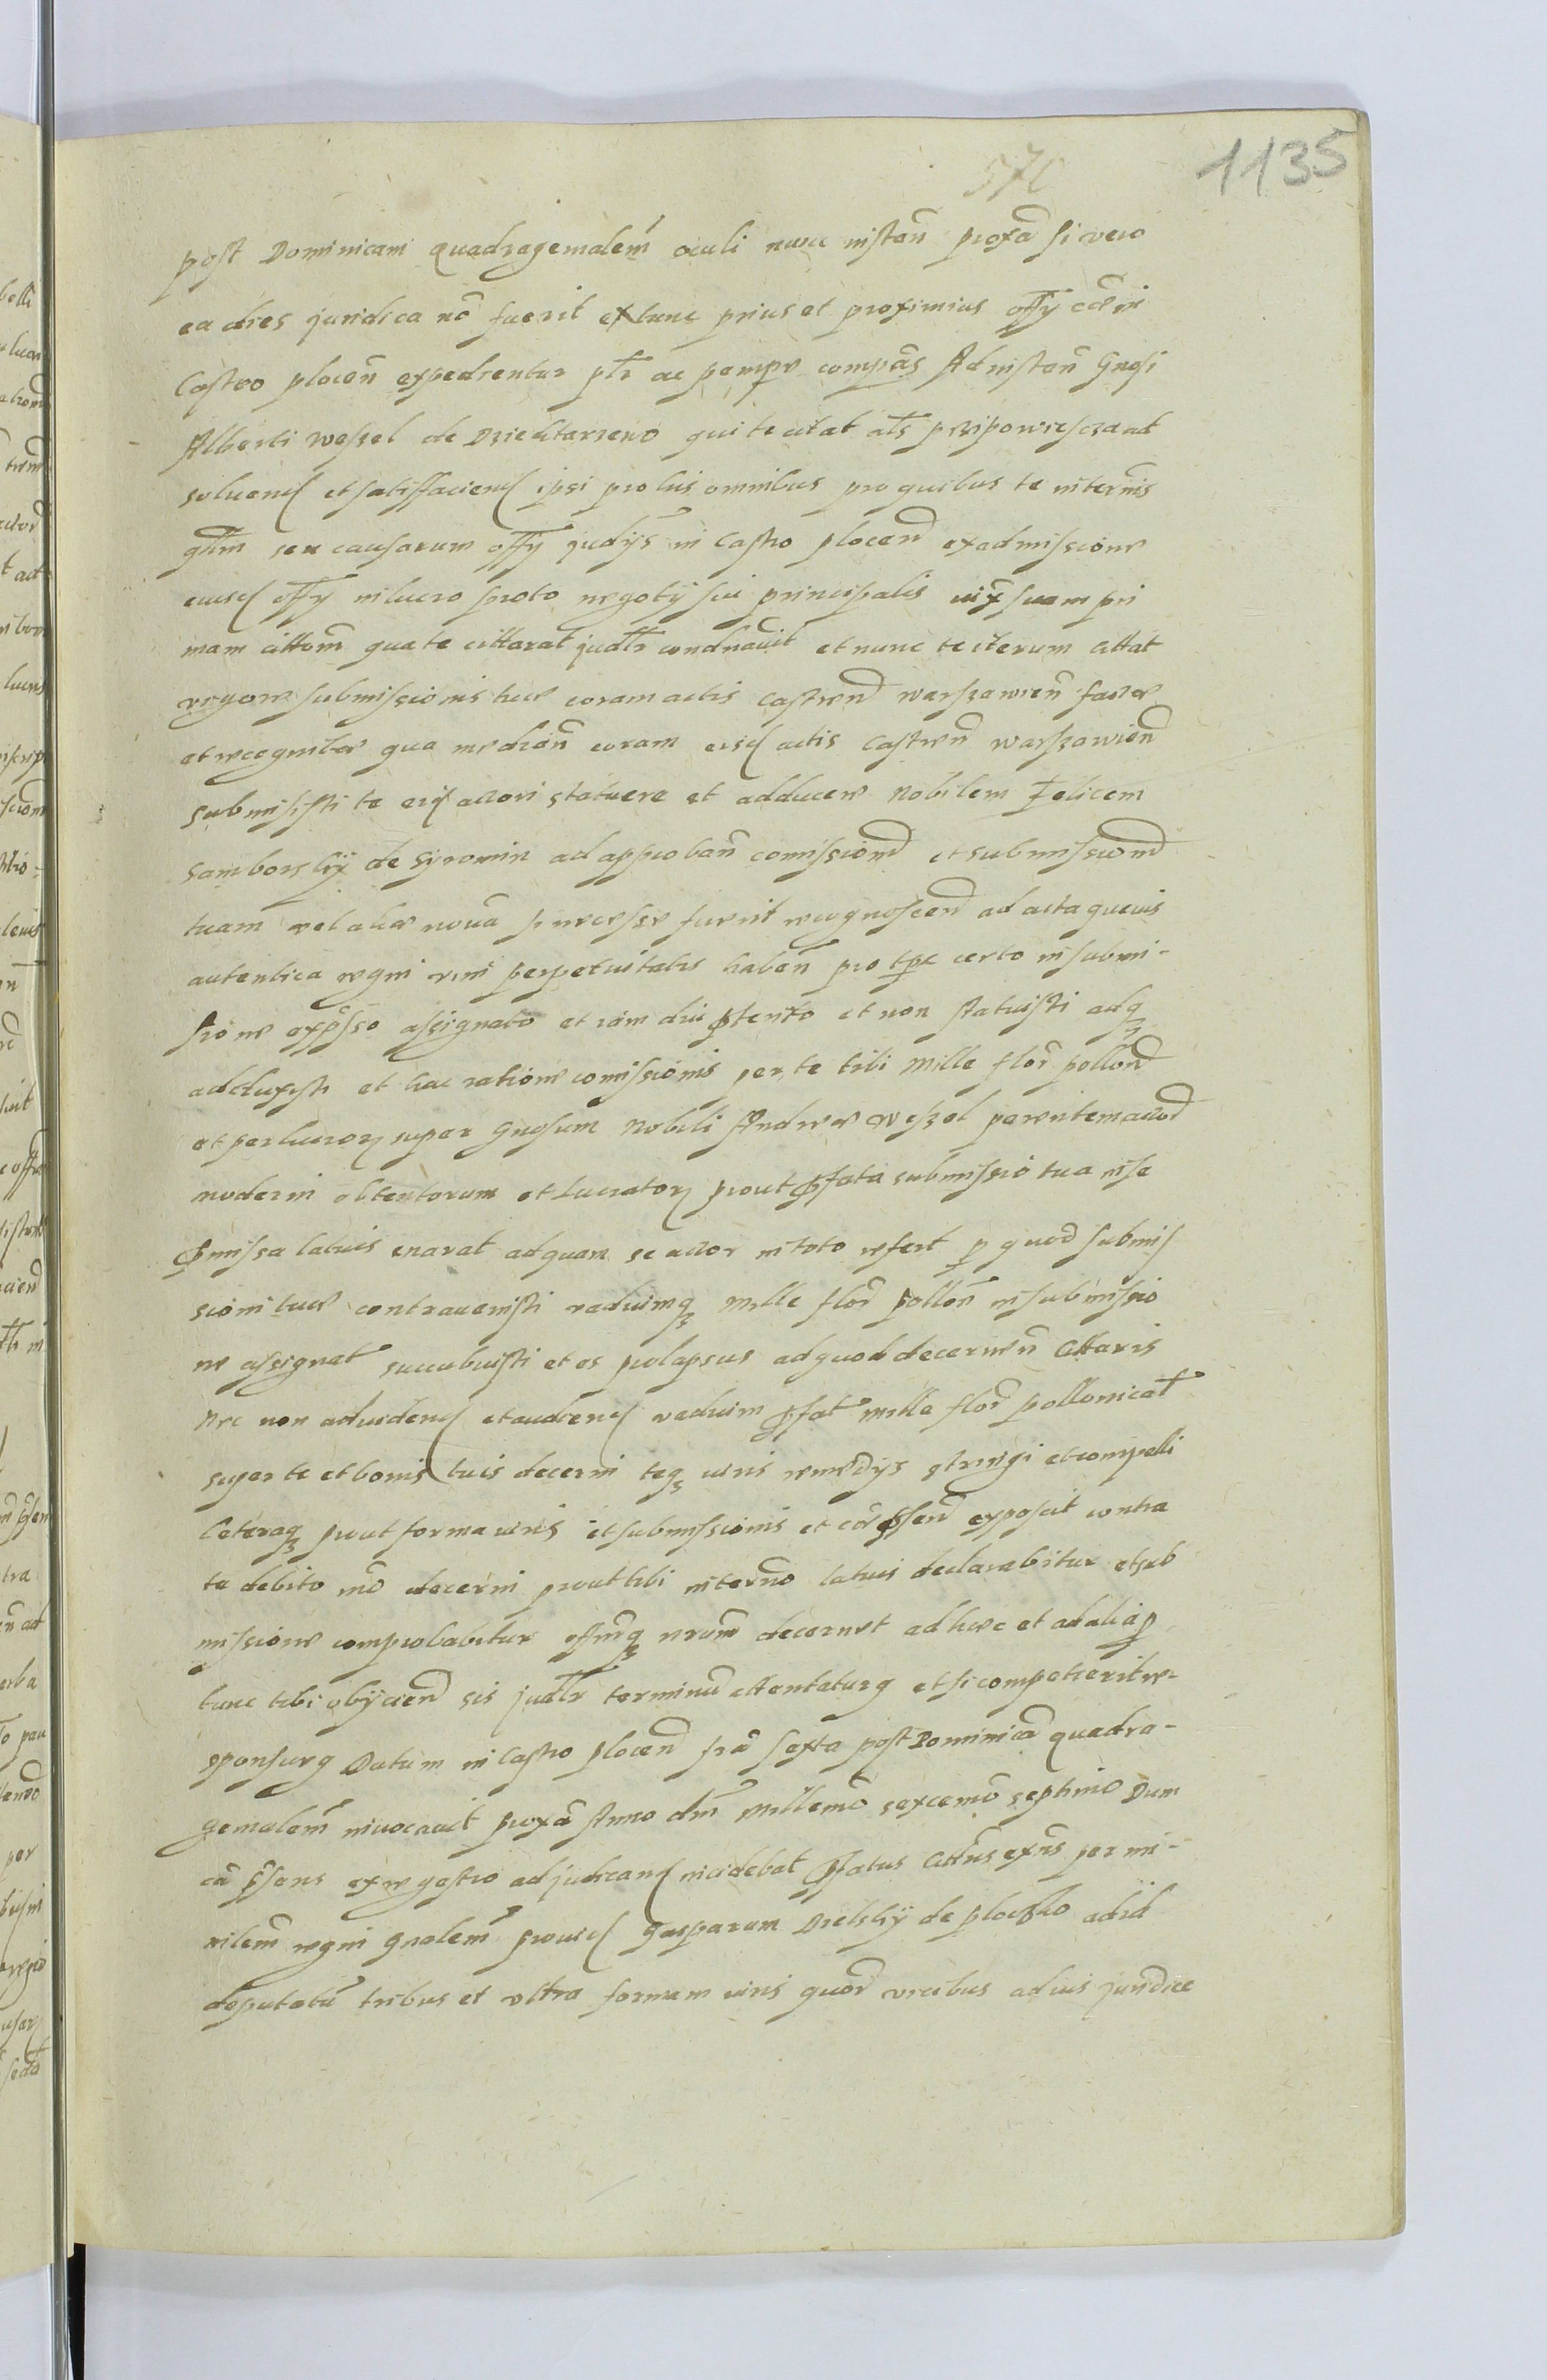 570
1135
post Dominicam quadragemalem̃ oculi nunc instañ proxã si vero
ea dies juridica nõ fuerit extunc prius et proximius offỹ
Castro plocen̄ expedientur ptr ac pempe compãs Ad instañ Gnosi
Alberti weszel de Dziektarzewo qui te citat als przipowiesczaat
soluend et satisfaciend ipsi pro his omnibus pro quibus te in termis
seu causarum offỹ judijs in Castro plocen̄ ex admissione
eiusd offỹ in lucro negotij sui principalis iux suam pri
mam cittom̄ qua te cittarat judtr condnauit et nunc te iterum cittat
vigore submissionis tue coram actis Castren̄ warszawien̄ facte
et recognite qua median̄ coram eisd actis Castren̄ warszawien̄
submisisti te eid actori statuere et adducere Nobilem Felicem
Samborskij de Syromin ad approban̄ comissiom̄ et submissiom̄
tuam vel alia noua si necesse fuerit recognoscend ad acta queuis
autentica regni vim perpetuitatis haben̄ pro tpe certo in submi-
sione expsso assignato et iam diu ptento et non statuisti adq3
adduxisti et hac ratione comissionis per te tibi Mille flor̄ pollon̄
et perlucror super Gnosum Nobili Andrea Weszel parentem actor̄
moderni obtentorum et lucrator prout pfata submissio tua in se
pmissa latius enarat ad quam se actor in toto refert p quod submis
sioni tue contrauenisti vadiumq3 Mille flor̄ pollon̄ in submissio
ne assignat succubuisti et es prolapsus ad quod decernen̄ cittaris
Nec non ad videnḍ et audienḍ vadium pfat Mille flor̄ pollonicat̄
super te et bonis tuis decerni teq3 iuris remedijs stringi et compelli
Ceteraq3 prout forma iuris et submissionis et exposcit contra
te debito mõ decerni prout tibi in termno latius declarabitur et sub
missione comprobabitur offmq3 nrum decernet ad hec et ad alia p
tunc tibi obijciend sis judtr terminũ attentaturq et si competierit re-
sponsurq Datum in Castro plocen̄ fra sexta post Dominicã quadra-
gemalem̄ inuocauit proxã Anno dm̄ Millemõ sexcemõ septimo Dum
cã psens ex regestro ad judicand incidebat pfatus Attens exns per mi-
rilem̄ regni gnalem̄ prouid Gasparum Dielskij de plocsko ad id
deputatũ tribus et vltra formam iuris quor̄ vicibus ad ius juridice